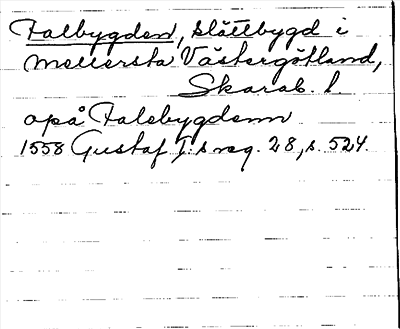 Falbygden, slättbygd i
mellersta Västergötland,
Skarab. l.
opå Falebygdenn
1558 Gustaf I:s reg. 28, s. 524.